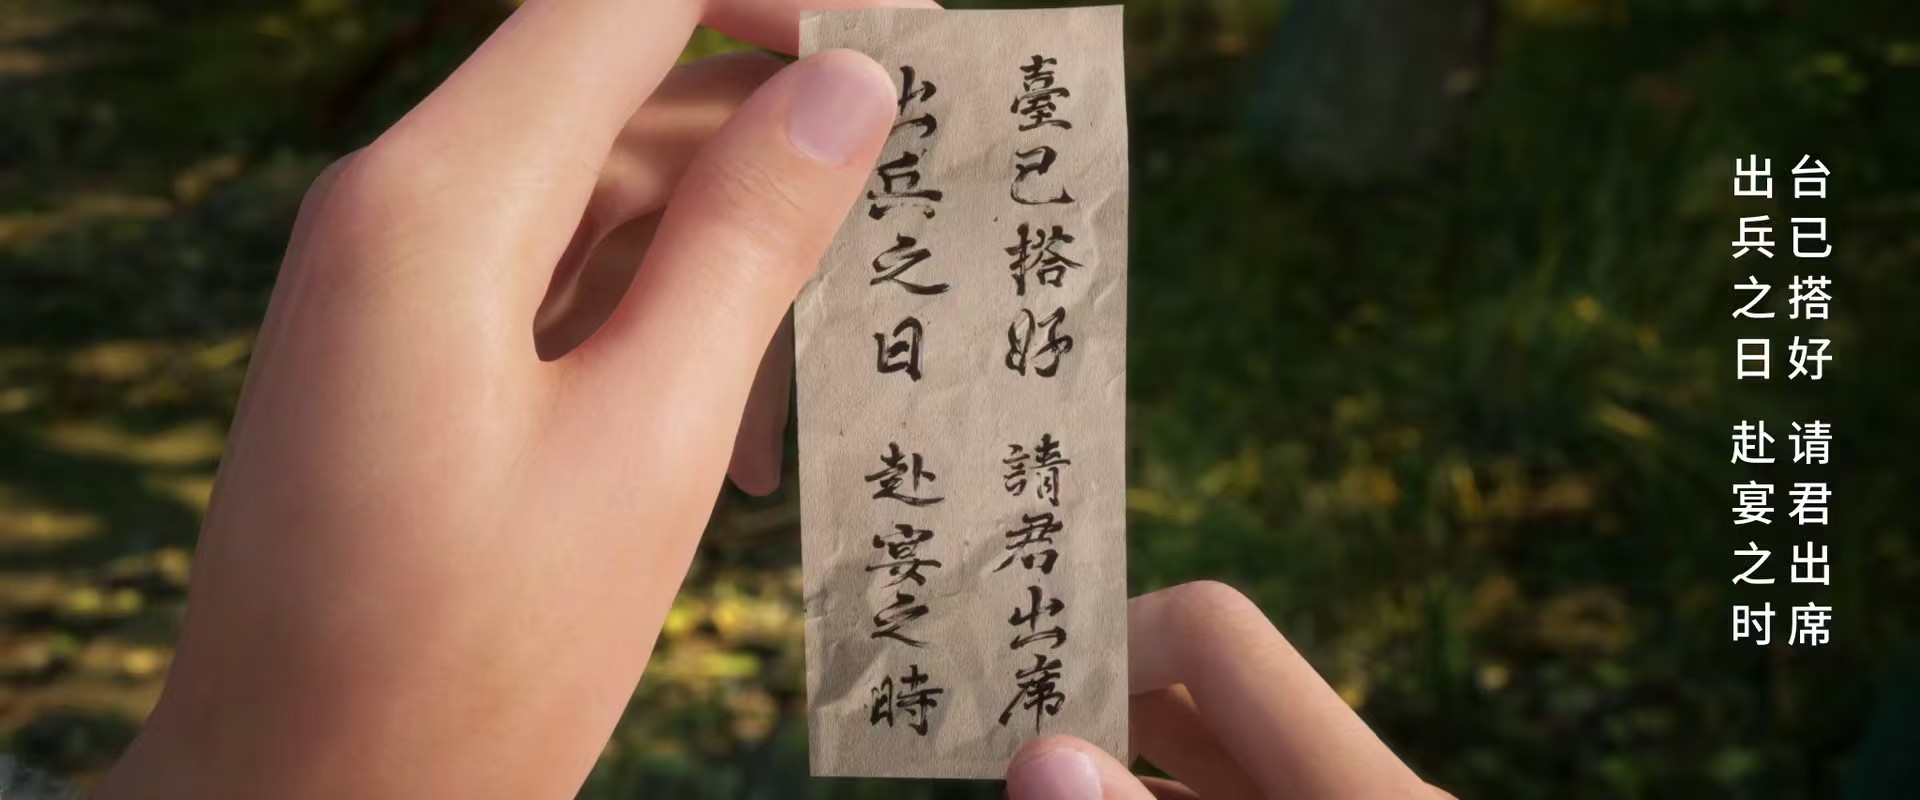 臺已搭好 請君出席
出兵之日 赴宴之時
台已搭好 请君出席
出兵之日 赴宴之时